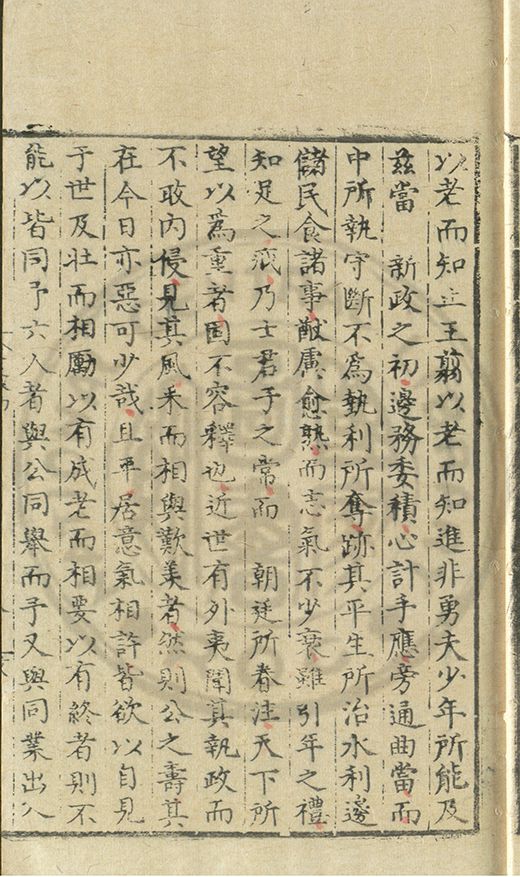 以老而知止王翦以老而知進非勇夫少年所能及
茲當 新政之初邊務委積心計手應旁通曲當而
中所執守斷不爲執利所奪跡其平生所治水利邊
儲民食諸事猷慮愈熟而志氣不少衰雖引年之禮
知足之戒乃士君子之常而 朝廷所眷注天下所
望以爲重者固不容釋也近世有外夷聞其執政而
不敢內侵見其風采而相與歎羡者然則公之壽其
在今日亦惡可少哉且平居意氣相許皆欲以自見
于世及壯而相勵以有成老而相要以有終者則不
能以皆同予六人者與公同舉而予又與同業出入